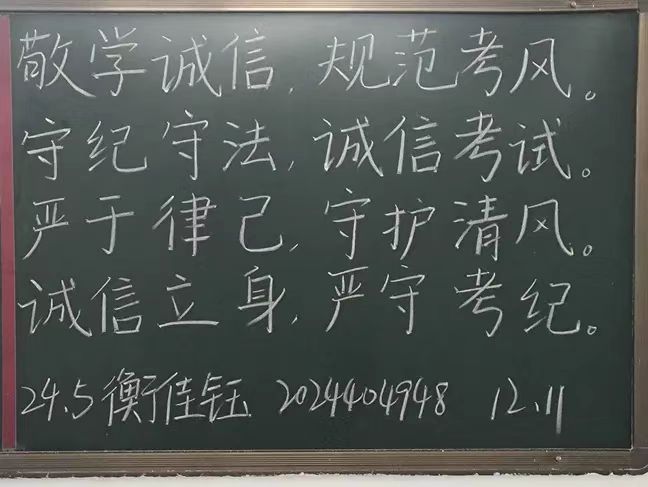 敬学诚信,规范考风。
守纪守法,诚信考试。
严于律己,守护清风。
诚信立身,严守考纪。
24.5衡佳钰 2024404948 12.11